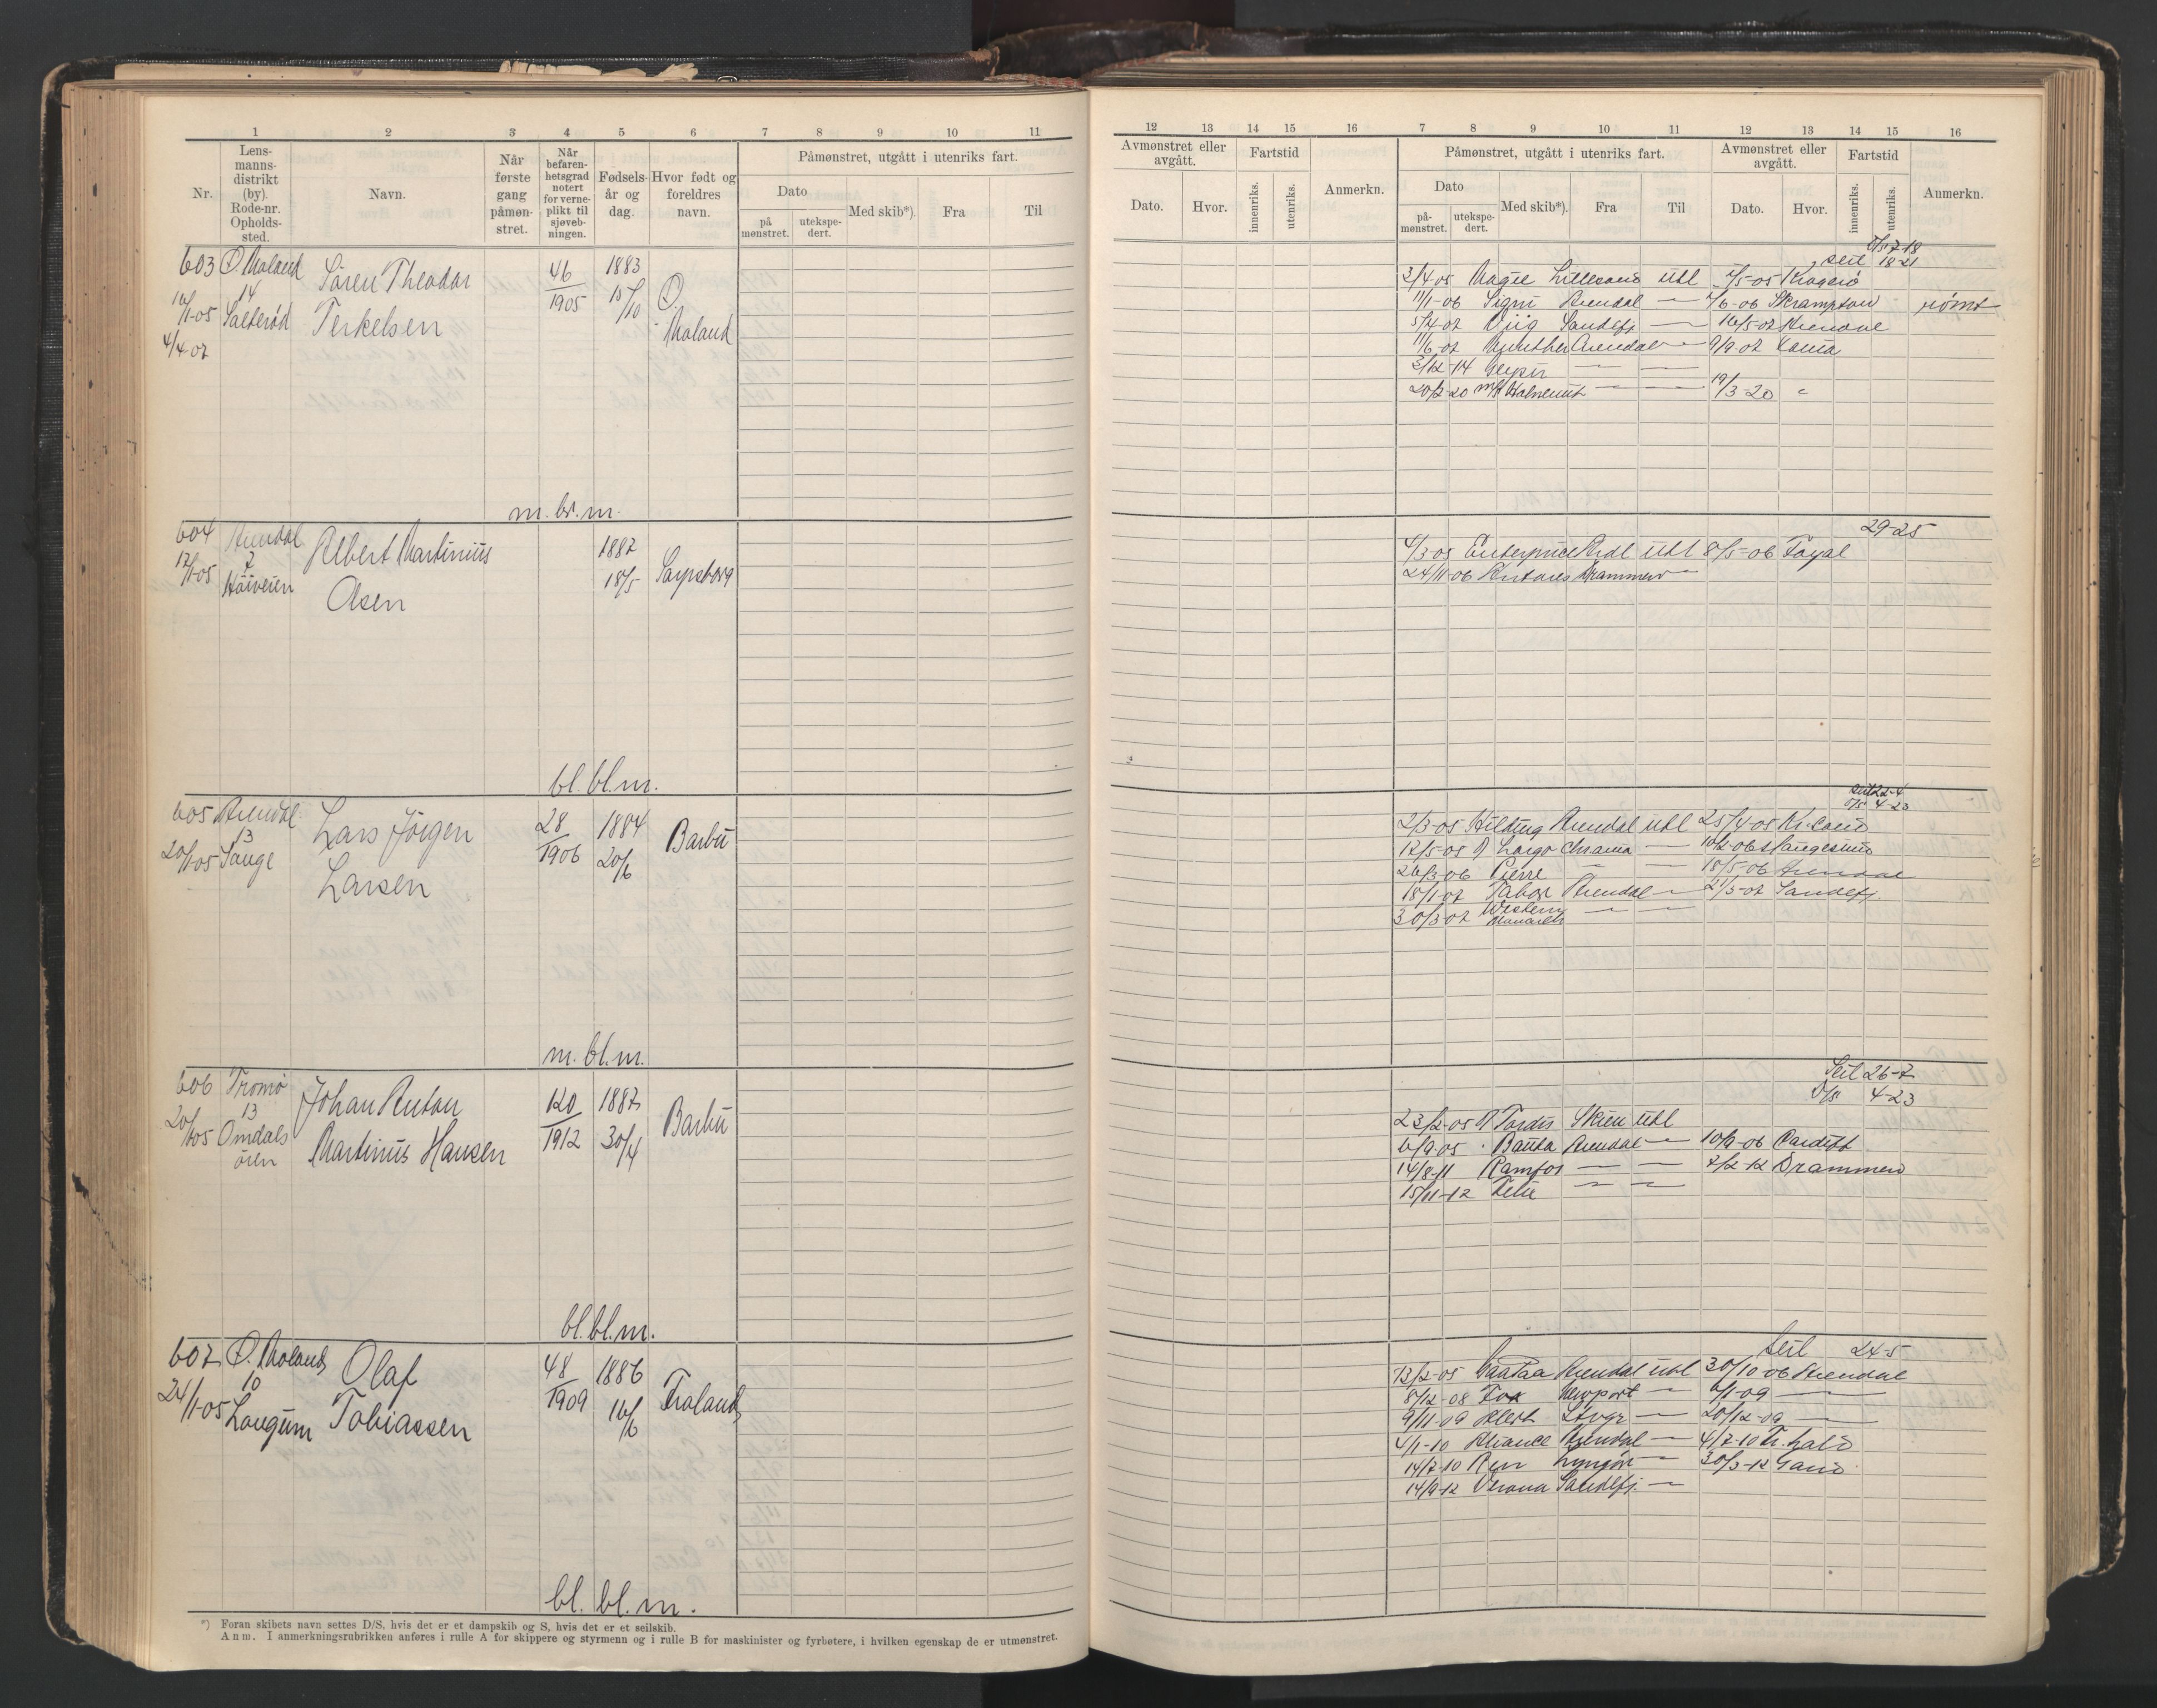 1 2 3 4 5 6 7 8 9 10 11
Nr. Lensmannsdistrikt (by). Rode-nr. Oppholdssted. Navn. Når første gang påmønstret. Når befarenhetsgrad notert for verneplikt til sjøvebningen. Fødselsår og dag. Hvor født og foreldres navn. Påmønstret, utgått i utenriks fart.
Dato
på mønstret. utekspedert. Med skib*). Fra Til
603 Ø. Moland Sören Theodor 46 1883
14 1905 15/10 Ø. Moland
16/1-05 Salterød Terkelsen
4/4-07
m. br. m.
604 Arendal Albert Martinius 1887
7 18/5 Sarpsborg
17/1-05 Höiveien Olsen
bl. bl. m.
605 Arendal Lars Jörgen 28 1884 Barbu
13 1906 20/6
20/1-05 Lange Larsen
m. bl. m.
606 Tromø Johan Anton 120 1887 Barbu
13 1912 30/4
20/1-05 Omdals Martinius Hansen
ören
bl. bl. m.
607 Ø. Moland Olaf 48 1886
10 1909 16/6 Froland
24/1-05 Longum Tobiassen
bl. bl. m.
*) Foran skibets navn settes D/S, hvis det er et dampskib og S, hvis det er et seilskib.
Anm. I anmerkningsrubrikken anføres i rulle A for skippere og styrmenn og i rulle B for maskinister og fyrbøtere, i hvilken egenskap de er utmønstret.
12 13 14 15 16 7 8 9 10 11 12 13 14 15 16
Avmønstret eller avgått. Fartstid Anmerkn. Påmønstret, utgått i utenriks fart. Avmønstret eller avgått. Fartstid Anmerkn.
Dato. Hvor. innenriks. utenriks. Dato
påmønstret. utekspedert. Med skib*). Fra Til Dato. Hvor. innenriks. utenriks.
D/S 7-18
Seil 18-21
3/4-05 Magie Lillesand utl 7/5-05 Kragerø
11/1-06 Signi Arendal — 7/6-06 rømt
5/4-07 Viig Sandefj — 16/5-07 Arendal
11/6-07 Arendal — 9/9-07
3/12-14 — —
20/2-20 m/s — — 19/3-20 "
29-25
4/3-05 Enterprice Ardl utl 8/5-06 Fayal
24/11-06 Antares Drammen —
Seil 22-4
D/S 4-23
2/3-05 Hilding Arendal utl 25/4-05 Kr.sand
17/5-05 Largo Chrania — 10/2-06 Haugesund
26/3-06 Pierre — — 15/5-06 Arendal
18/1-07 Tabor Arendal — 21/3-07 Sandefj.
30/3-07 Western Monarch — —
Seil 26-7
D/S 4-23
23/2-05 Tordis Skien utl
6/9-05 Bauta Arendal — 10/9-06 Cardiff
14/8-11 Ramfos — — 7/2-12 Drammen
15/11-12 — —
Seil 24-5
13/2-05 Arendal utl 30/10-06 Arendal
8/12-08 Fox Newport — 6/1-09 —
9/11-09 Albert Stvgr — 20/12-09 —
4/1-10 Aliance Arendal — 4/7-10 Fr.hald
14/7-10 Lyngör — 30/3-12
14/9-12 Verona Sandefj. —